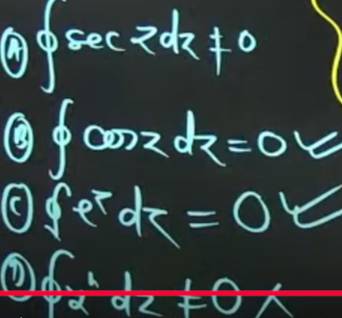 (A) ∮ sec z dz ≠ 0
(B) ∮ cos z dz = 0 ✓
(C) ∮ e^z dz = 0 ✓
(D) ∮ z^n dz ≠ 0 ×